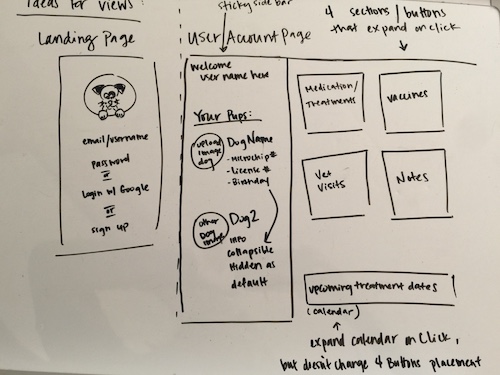 Ideas for views:
Landing Page
email/username
password
or
Login w/ Google
or
sign up
sticky side bar
User/Account Page
Welcome
user name here
Your Pups:
upload
image
dog
Dog Name
- Microchip #
- License #
- Birthday
other
Dog
image
Dog2
info
collapsible
Hidden as
default
4 sections/buttons
that expand on click
Medication/
Treatments
Vaccines
Vet
Visits
Notes
upcoming treatment dates
(calendar)
expand calendar on click,
but doesn't change 4 Buttons placement